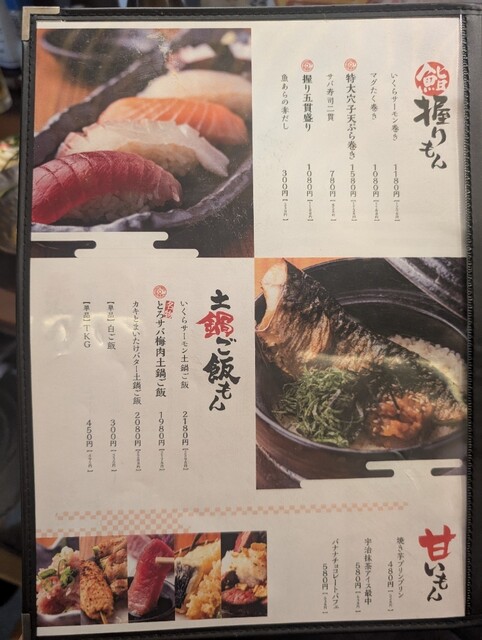 鮨握りもん
いくらサーモン巻き 1180円
マグたく巻き 1080円
特大穴子天ぷら巻き 1580円
サバ寿司二貫 780円
握り五貫盛り 1080円
魚あらの赤だし 300円
土鍋ご飯もん
いくらサーモン土鍋ご飯 2180円
とろサバ梅肉土鍋ご飯 1980円
カキとまいたけバター土鍋ご飯 2080円
【単品】白ご飯 300円
【単品】TKG 450円
甘いもん
焼き芋ブリンブリン 480円
宇治抹茶アイス最中 580円
バナナチョコレートパフェ 580円